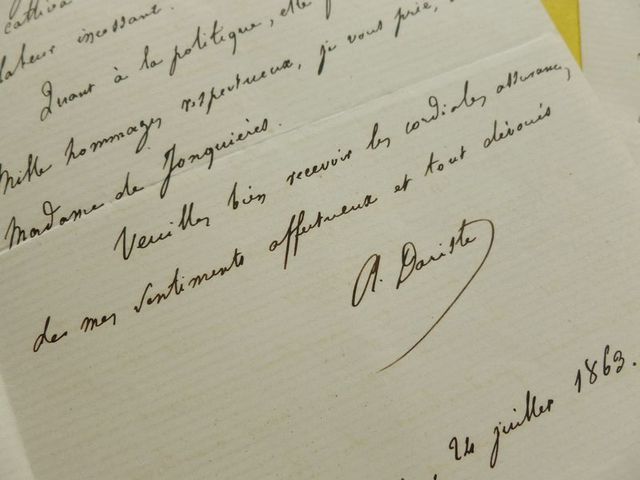 labeur incessant.
Quant à la politique, elle
Mille hommages respectueux, je vous prie,
Madame de Jonquières.
Veuillez bien recevoir les cordiales assurances
des mes sentiments affectueux et tout dévoués
A. Dariste
24 juillet 1863.